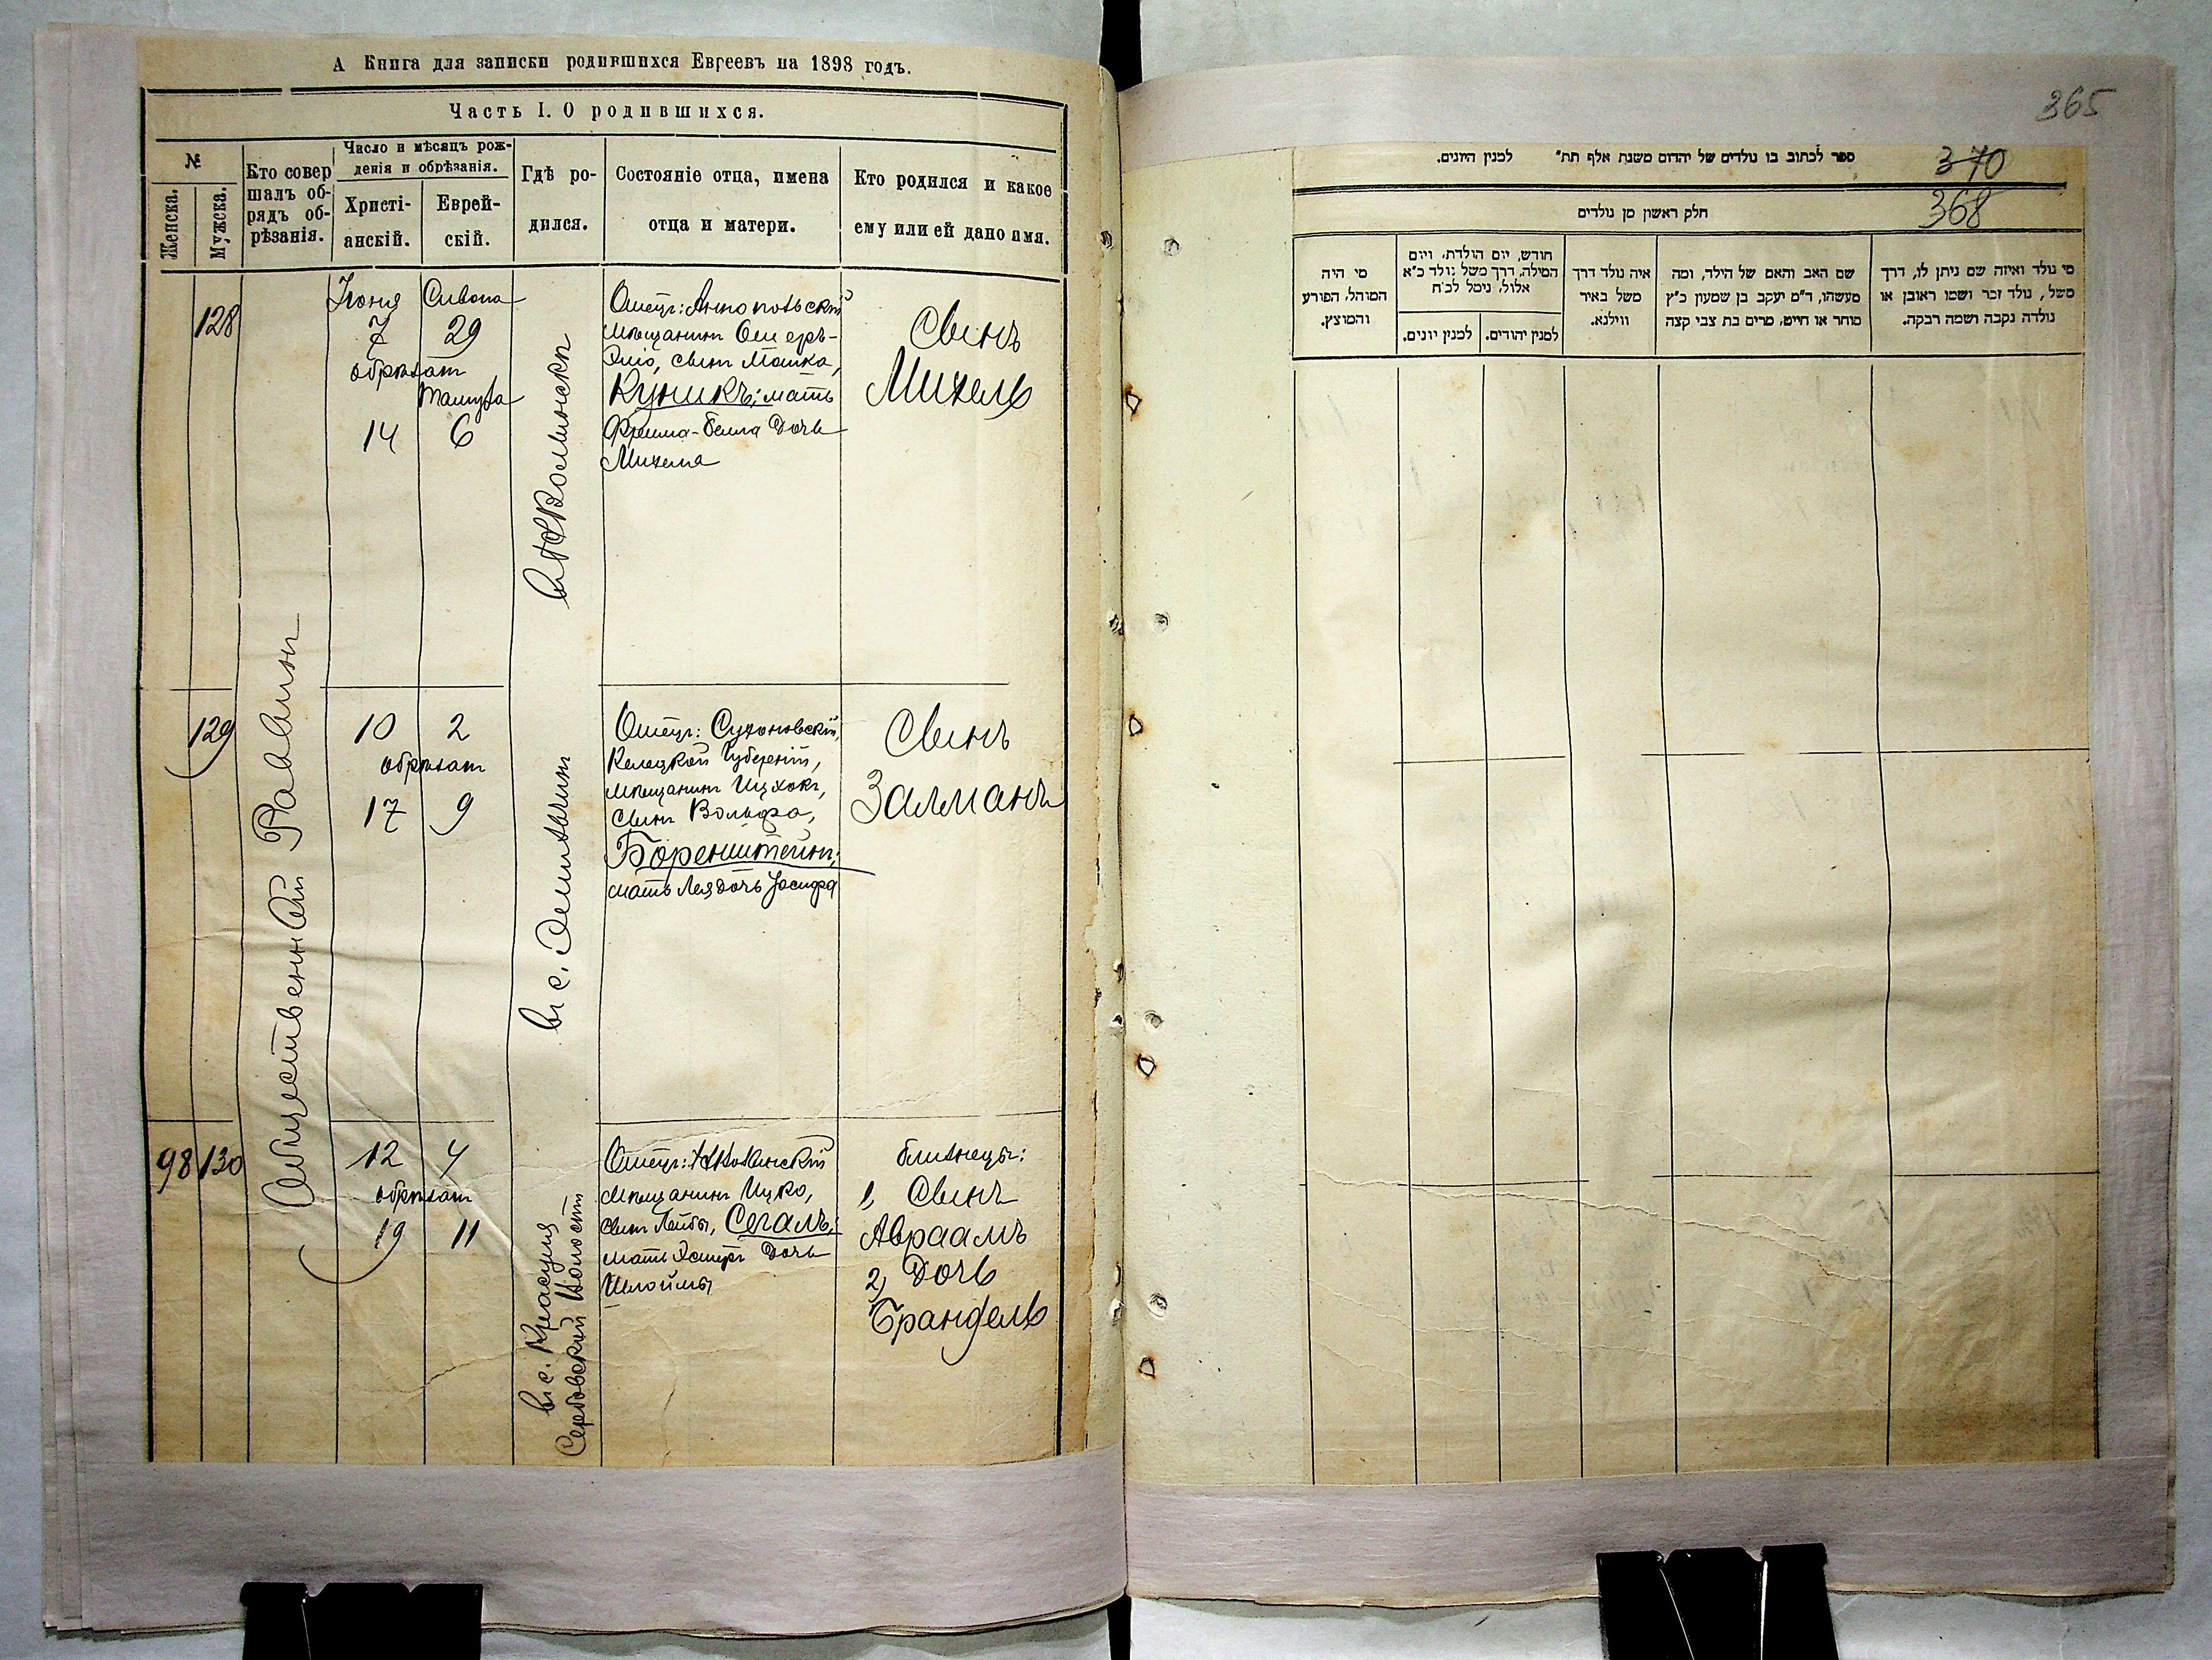 А Книга для записки родившихся Евреевъ на 1898 годъ.
Часть I. О родившихся.
№
Женска.
Мужска.
Кто совер
шалъ об-
рядъ об-
рѣзанія.
Число и мѣсяцъ рож-
денія и обрѣзанія.
Христі-
анскій.
Еврей-
скій.
Гдѣ ро-
дился.
Состояніе отца, имена
отца и матери.
Кто родился и какое
ему или ей дано имя.
Общественный Раввинъ
128
Іюня Сивана
7 29
обрѣзанъ
Тамуза
14 6
Отецъ: Аннопольскій
мѣщанинъ Ошеръ-
Эліо, сынъ Мошка,
Кушкъ; мать
Фрейма-Бейла дочь
Михеля
Сынъ
Михель
129
10 2
обрѣзанъ
17 9
въ с.
Отецъ: Сухоновскій,
Келецкой Губерніи,
мѣщанинъ Ицхокъ,
сынъ Вольфа,
Боренштейнъ;
мать Лея дочь Іосифа
Сынъ
Залманъ
98 130
12 4
обрѣзанъ
19 11
въ с.
Волости
Отецъ:
мѣщанинъ Ицко,
сынъ Лейбы, Сегалъ;
мать Эстеръ дочь
Шлоймы
близнецы:
1, Сынъ
Авраамъ
2, Дочь
Брандель
365
ספר לכתוב בו נולדים של יהדום משנת אלף תת" למנין היונים.
370
חלק ראשון מן נולדים
368
מי נולד ואיזה שם ניתן לו, דרך
משל, נולד זכר ושמו ראובן או
נולדה נקבה ושמה רבקה.
שם האב והאם של הילד, ומה
מעשהו, ד"מ יעקב בן שמעון כ"ץ
סוחר או חייט, מרים בת צבי קצה
איה נולד דרך
משל באיר
ווילנא.
חודש, יום הולדת, ויום
המילה, דרך משל נולד כ"א
אלול, נימל לכ"ח
למנין יהודים.
למנין יונים.
מי היה
המוהל, הפורע
והמוצץ.